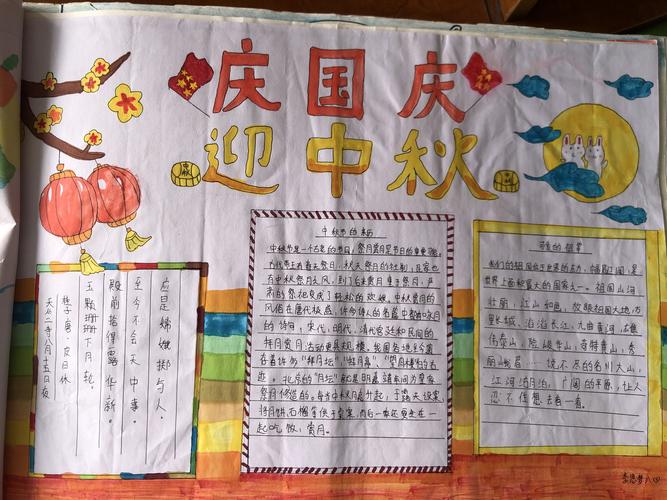 庆国庆
迎中秋
中秋
天竺寺八月十五日夜
桂子 唐·皮日休
玉颗珊珊下月轮,
殿前拾得露华新。
至今不会天中事,
应是嫦娥掷与人。
中秋节的来历
中秋节是一个古老的节日,祭月赏月是节日的重要习俗。
古代帝王有春天祭日,秋天祭月的社制,民家也
有中秋祭月之风,到了后来赏月重于祭月,严
肃的祭祀变成了轻松的欢娱。中秋赏月的
风俗在唐代极盛,许多诗人的名篇中都有咏月
的诗句,宋代、明代、清代宫廷和民间的
拜月赏月活动更具规模。我国各地至今遗
存着许多"拜月坛""拜月亭""望月楼"的古
迹。北京的"月坛"就是明嘉靖年间为皇家
祭月修造的。每当中秋月亮升起,于露天设案,
将月饼、石榴等供于桌案,而后一家还要坐在一
起吃饭,赏月。
可爱的祖国
我们的祖国位于世界的东方,幅员辽阔,是
世界上面积最大的国家之一。祖国山河
壮丽,江山如画。放眼祖国大地,万
里长城,滔滔长江,九曲黄河,
泰山,险峻华山,奇特黄山,秀
丽峨眉……说不尽的名川大山,
江河湖泊,广阔的平原,让人
忍不住想去看一看。